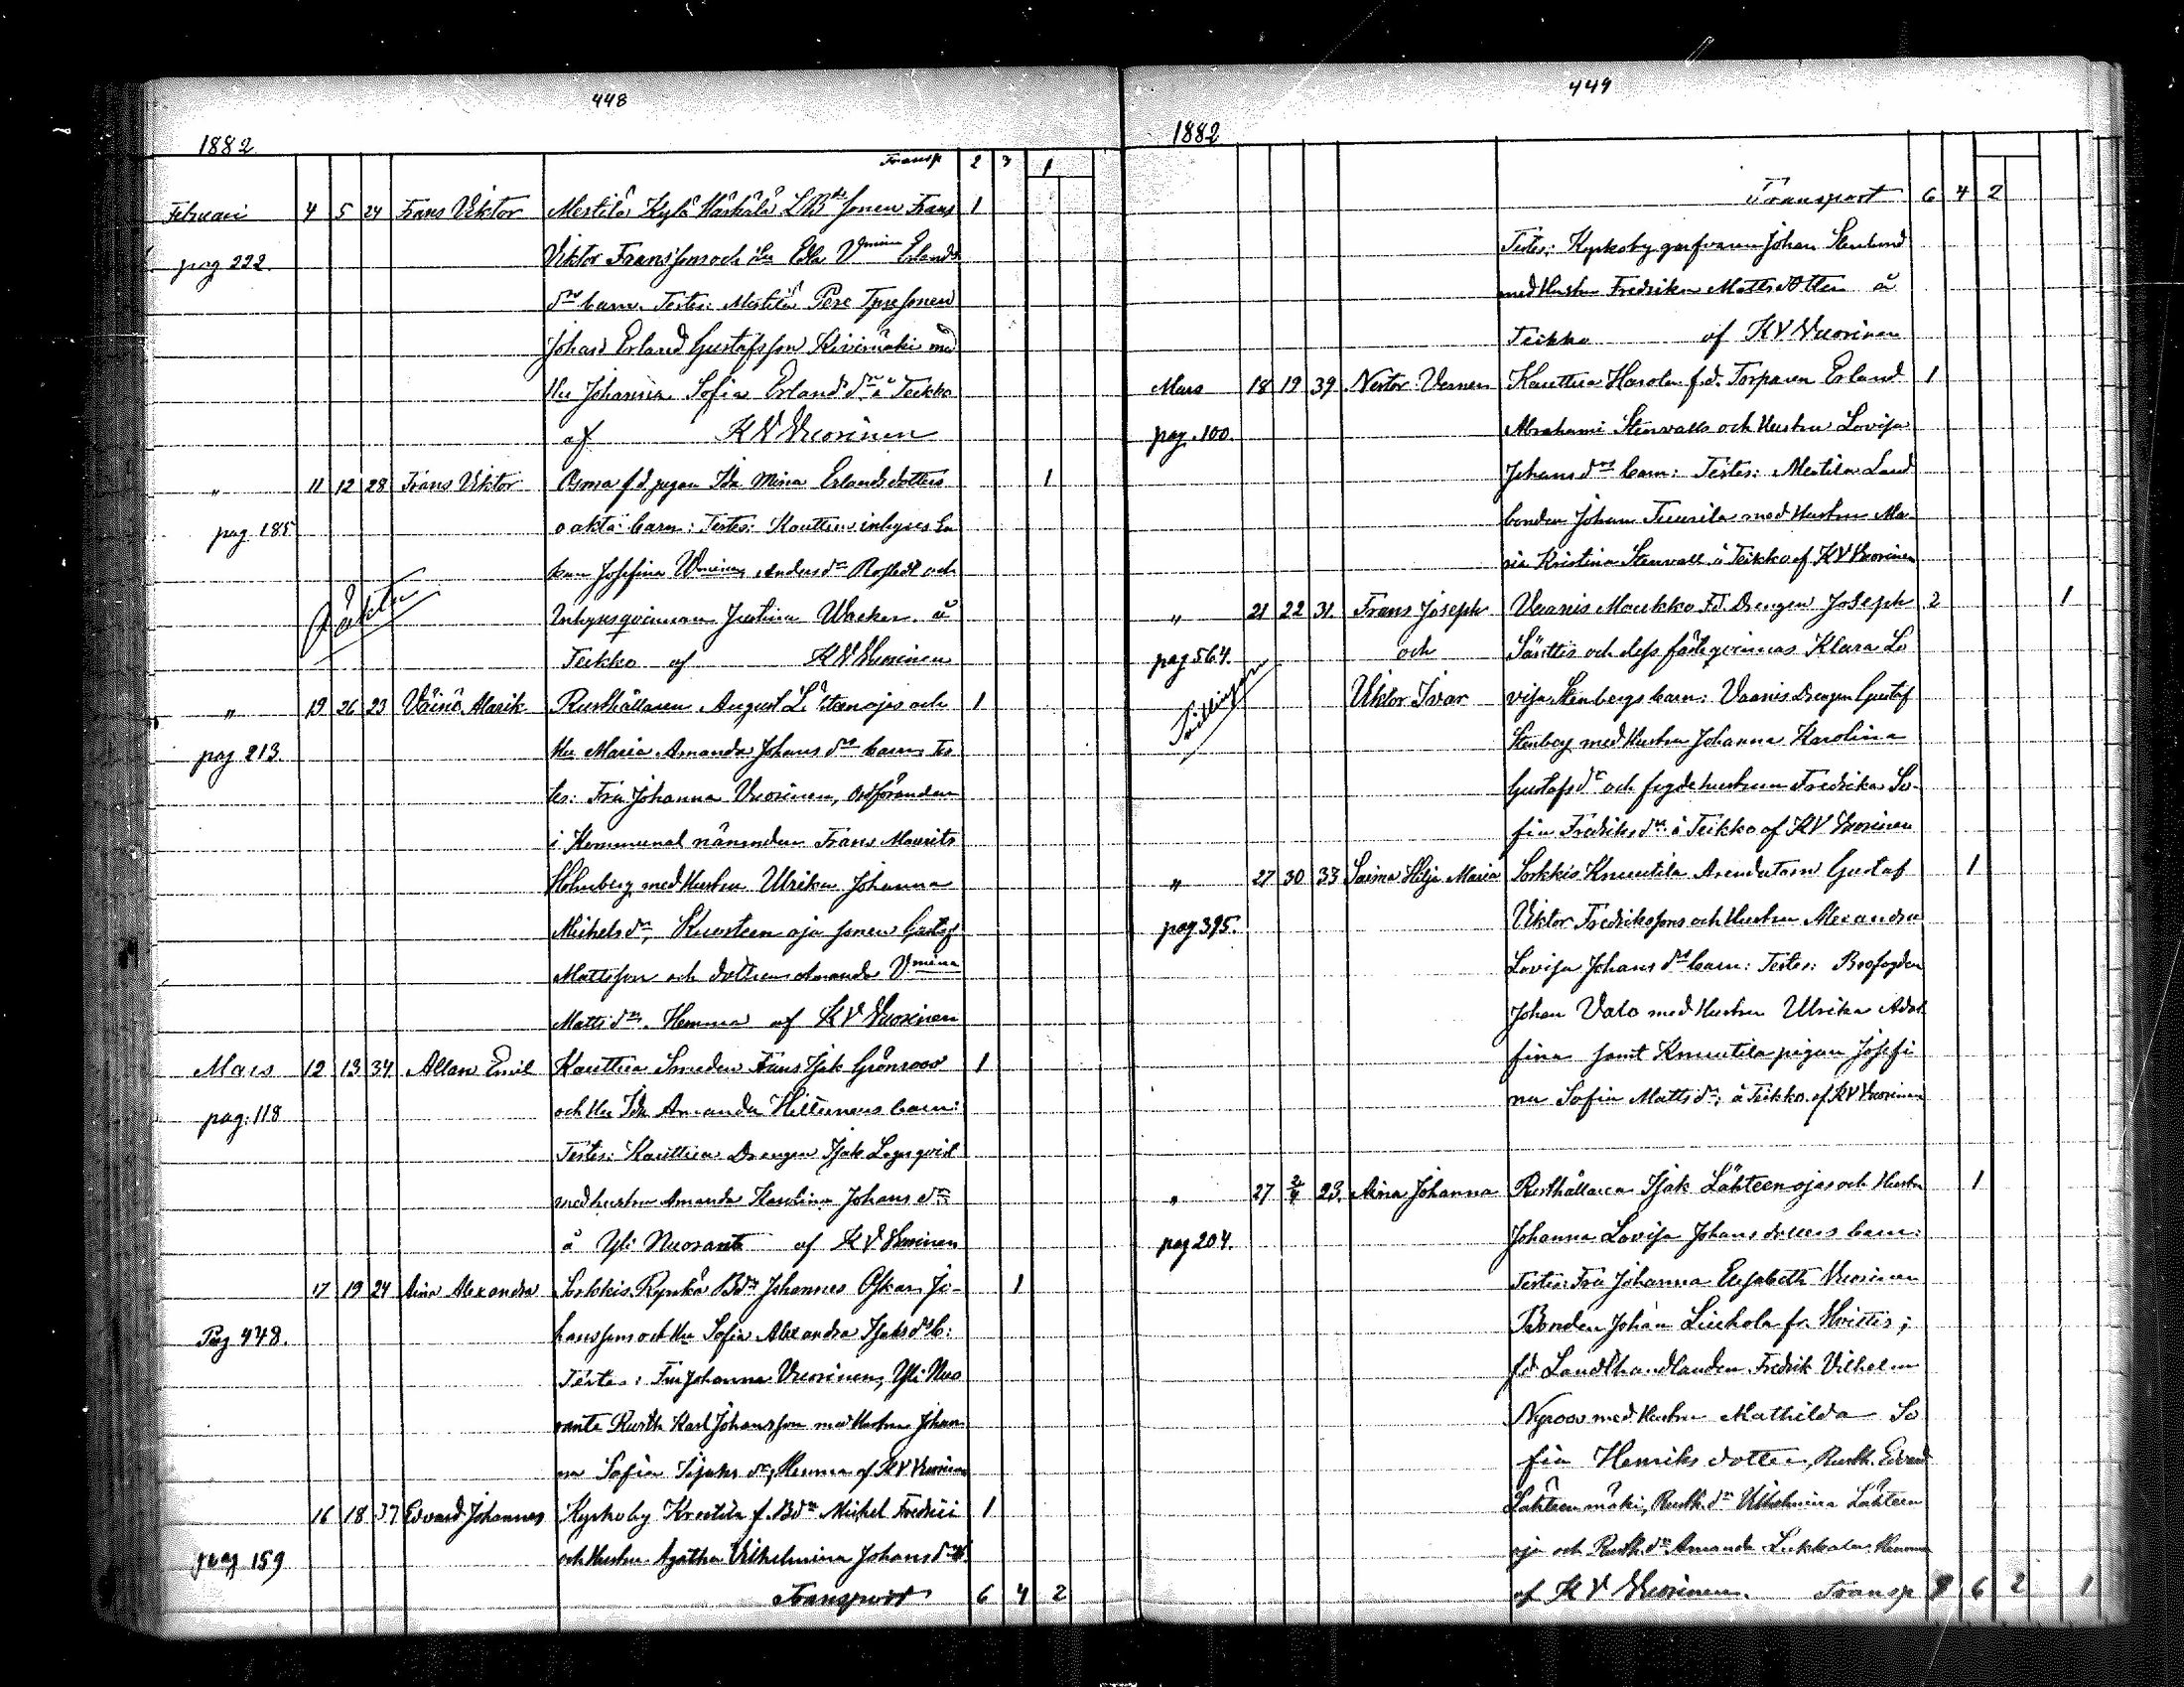 448
1882
Transp 2 3 1
Februari 4 5 24 Frans Viktor Mestilä Kylä Härkälä LBde sonen Frans 1
pag 222. Viktor Fransson och hu Edla Vmina Erlands
drs barn. Testes: Mestilä Pere Tpresonen
Johan Erland Gustafsson Kivimäki med
hu Johanna Sofia Erlandsdr å Teikko
af K V Vuorinen
" 11 12 28 Frans Viktor f.d. pigan Ida Mina Erlandsdotters 1
pag. 185 oäkta barn: Testes: Kauttua inhyses En
kan Josefina Wmina Andersdr Rostedt och
Oäkta Inhysesqvinnan Justina Wacker å
Teikko af K V Vuorinen
" 19 26 23 Väinö Alarik Rusthållaren August L. steenojas och 1
pag 213. hu Maria Amanda Johans drs barn Tes
tes: Fru Johanna Vuorinen, Ordföranden
i Kommunal nämnden Frans Maurits
Holmberg med hustru Ulrika Johanna
Michelsdr, Kuusteenoja sonen Gustaf
Mattsson och dottren Amanda Vmina
Mattsdr. Hemma af K V Vuorinen
Mars 12 13 34 Allan Emil Kauttua Smeden Frans Isak Grönroos 1
pag. 118 och hu Ida Amanda Hiltunens barn:
Testes: Kauttua Drengen Isak Legeqvist
med hustru Amanda Karolina Johans dr
å Yli Nuoranti af K V Vuorinen
17 19 24 Aina Alexandra Sorkkis Rynkä Bdn Johannes Oskar Jo- 1
Pag 448. hansson och hu Sofia Alexandra Isaksdrs b:
Testes: Fru Johanna Vuorinen, Yli Nuo
ranta Rusth Karl Johansson med hustru Johan
na Sofia Isaks dr, Hemma af K V Vuorinen
16 18 37 Edvard Johannes Kyrkoby Krootila f. Bdn Mickel Fredriki 1
pag 159 och hustru Agatha Vilhelmina Johansdrs
Transport 6 4 2
449
1882
Transport 6 4 2
Testes: Kyrkoby garfvaren Johan Stenlund
med hustru Fredrika Mattsdotter å
Teikko af K V Vuorinen
Mars 18 19 39 Nestor Verner Kauttua Harola f.d. Torparen Erland 1
pag. 100. Abrahami Stenvalls och hustru Lovisa
Johans drs barn: Testes: Mestila Land
bonden Johan Tuurila med hustru Ma-
ria Kristina Stenvall å Teikko af K V Vuorinen
" 21 22 31. Frans Joseph Vaanis Moukko F.d. Drengen Joseph 2 1
pag 564. och Säittis och dess fästeqvinnas Klara Lo
Tvillingar Viktor Ivar visa Stenbergs barn: Vaanis Drengen Gustaf
Stenberg med hustru Johanna Karolina
Gustafsdr och fogdehustrun Fredrika So-
fia Fredriks dr å Teikko af K V Vuorinen
" 27 30 33 Saima Hilja Maria Sorkkis Knuutila Arendatorn Gustaf 1
pag 395. Viktor Fredrikssons och hustru Alexandra
Lovisa Johans drs barn: Testes: Brofogden
Johan Valo med hustru Ulrika Adol
fina samt Knuutila pigan Josefi
na Sofia Matts dr, å Teikko af K V Vuorinen
" 27 2/4 23. Aina Johanna Rusthållaren Isak Lähteenojas och hustru 1
pag 204. Johanna Lovisa Johansdotters barn:
Testes: Fru Johanna Elisabeth Vuorinen
Bonden Johan Liuhola fr. Hvittis;
f.d. Landthandlanden Fredrik Vilhelm
Nyroos med hustru Mathilda So
fia Henriksdotter, Rusth. Edvard
Lähteenmäki, Rusth. dr Vilhelmina Lähteen
oja och Rusth. dr Amanda Hemma
af K V Vuorinen. Transp 9 6 2 1